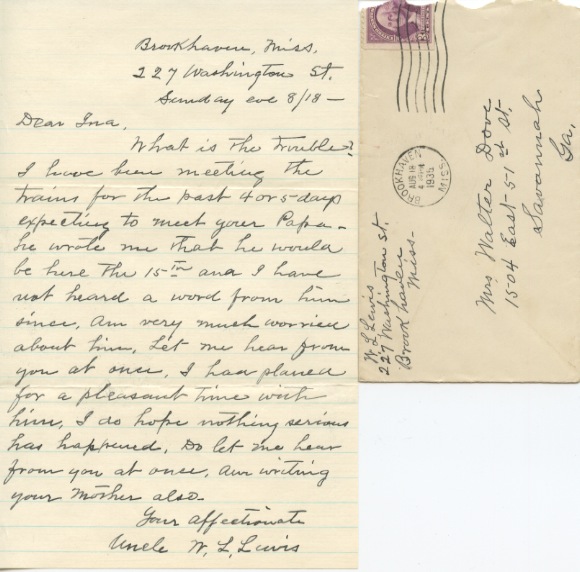 Brookhaven, Miss.
227 Washington St.
Sunday eve 8/18 -
Dear Ina,
What is the trouble?
I have been meeting the
trains for the past 4 or 5 days
expecting to meet your Papa -
he wrote me that he would
be here the 15th and I have
not heard a word from him
since. Am very much worried
about him. Let me hear from
you at once. I had planed
for a pleasant time with
him. I do hope nothing serious
has happened. Do let me hear
from you at once. Am writing
your Mother also.
Your affectionate
Uncle W. L. Lewis
3
BROOKHAVEN
AUG 18
1935
MISS.
Mrs Walter Dove
1504 East-51st St.
Savannah
Ga.
W L Lewis
227 Washington St.
Brookhaven
Miss-